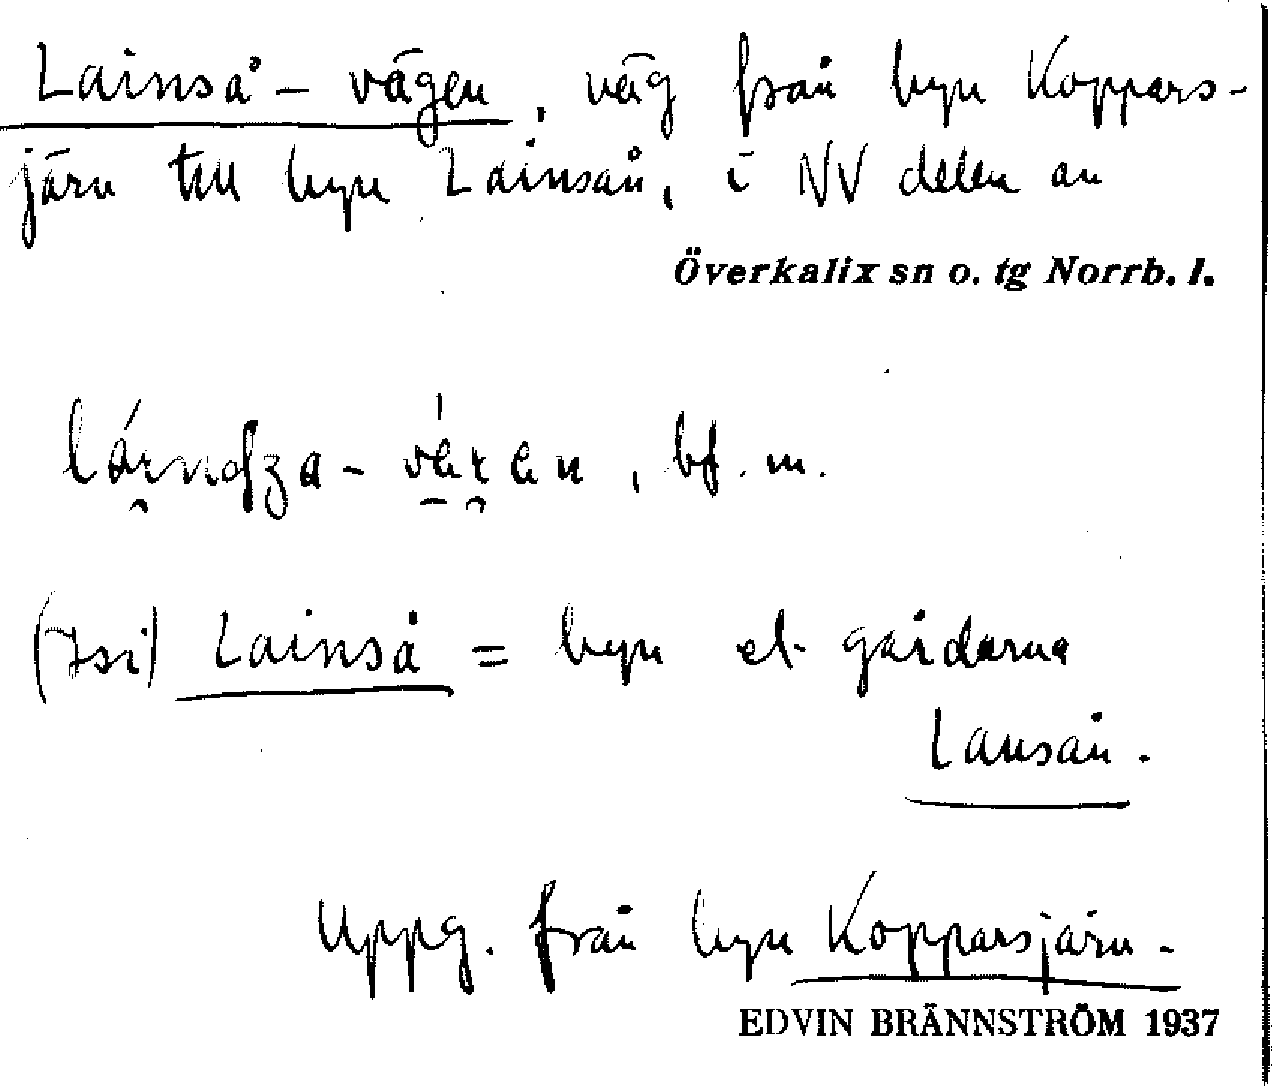 Lainså-vägen, väg från byn Koppars-
järn till byn Lainsån, i NV delen av
Överkalix sn o. tg Norrb. l.
bf. m.
Lainså = byn el. gårdarna
Lansån.
Uppg. från byn Kopparsjärn.
EDVIN BRÄNNSTRÖM 1937